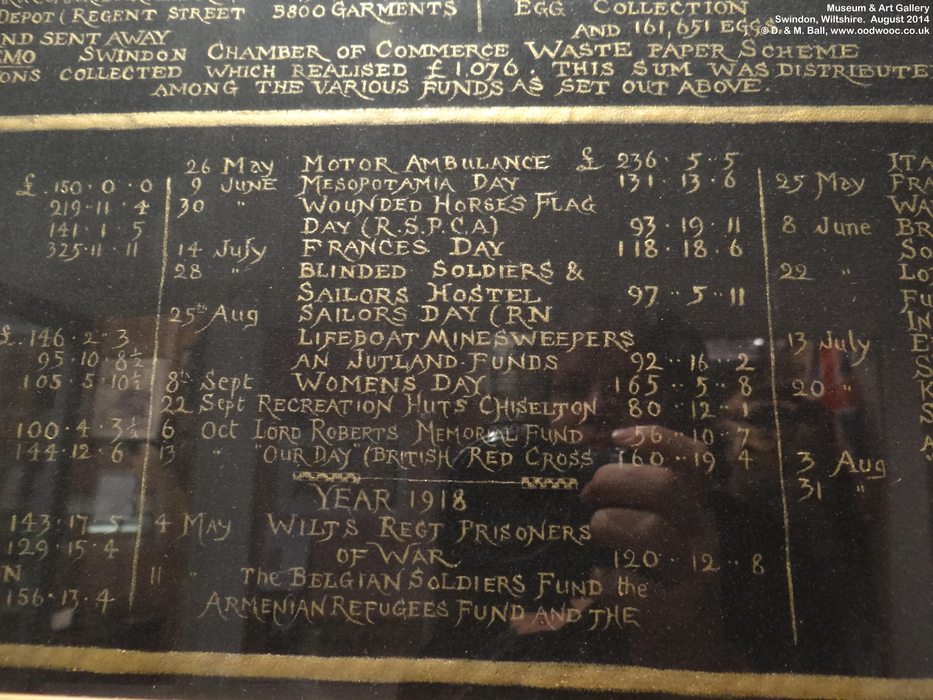 Museum & Art Gallery
Swindon, Wiltshire. August 2014
© D. & M. Ball, www.oodwooc.co.uk
DEPOT (REGENT STREET 5800 GARMENTS EGG COLLECTION
ND SENT AWAY AND 161,651 EGGS
EMO SWINDON CHAMBER OF COMMERCE WASTE PAPER SCHEME
ONS COLLECTED WHICH REALISED £1,076. THIS SUM WAS DISTRIBUTE
AMONG THE VARIOUS FUNDS AS SET OUT ABOVE.
26 May MOTOR AMBULANCE £ 236 · 5 · 5 ITA
£ 150 · 0 · 0 9 JUNE MESOPOTAMIA DAY 131 · 13 · 6 25 May FRA
219 · 11 · 4 30 " WOUNDED HORSES FLAG WA
141 · 1 · 5 DAY (R.S.P.C.A) 93 · 19 · 11 8 June BR
325 · 11 · 11 14 July FRANCES DAY 118 · 18 · 6 SO
28 " BLINDED SOLDIERS & 22 " LO
SAILORS HOSTEL 97 · 5 · 11 FU
25th Aug SAILORS DAY (RN IN
£ 146 · 2 · 3 LIFEBOAT MINESWEEPERS 13 July E
95 · 10 · 8½ AN JUTLAND FUNDS 92 · 16 · 2 S
105 · 5 · 10½ 8th Sept WOMENS DAY 165 · 5 · 8 20 " K
22 Sept RECREATION HUTS CHISELTON 80 · 12 · 1 S
100 · 4 · 3½ 6 Oct LORD ROBERTS MEMORIAL FUND 56 · 10 · 7
144 · 12 · 6 13 " "OUR DAY" (BRITISH RED CROSS 160 · 19 4 3 Aug
YEAR 1918 31 "
143 · 17 · 5 4 May WILTS REGT PRISONERS
129 · 15 · 4 OF WAR 120 · 12 · 8
N 11 " The BELGIAN SOLDIERS FUND the
156 · 13 · 4 ARMENIAN REFUGEES FUND AND THE